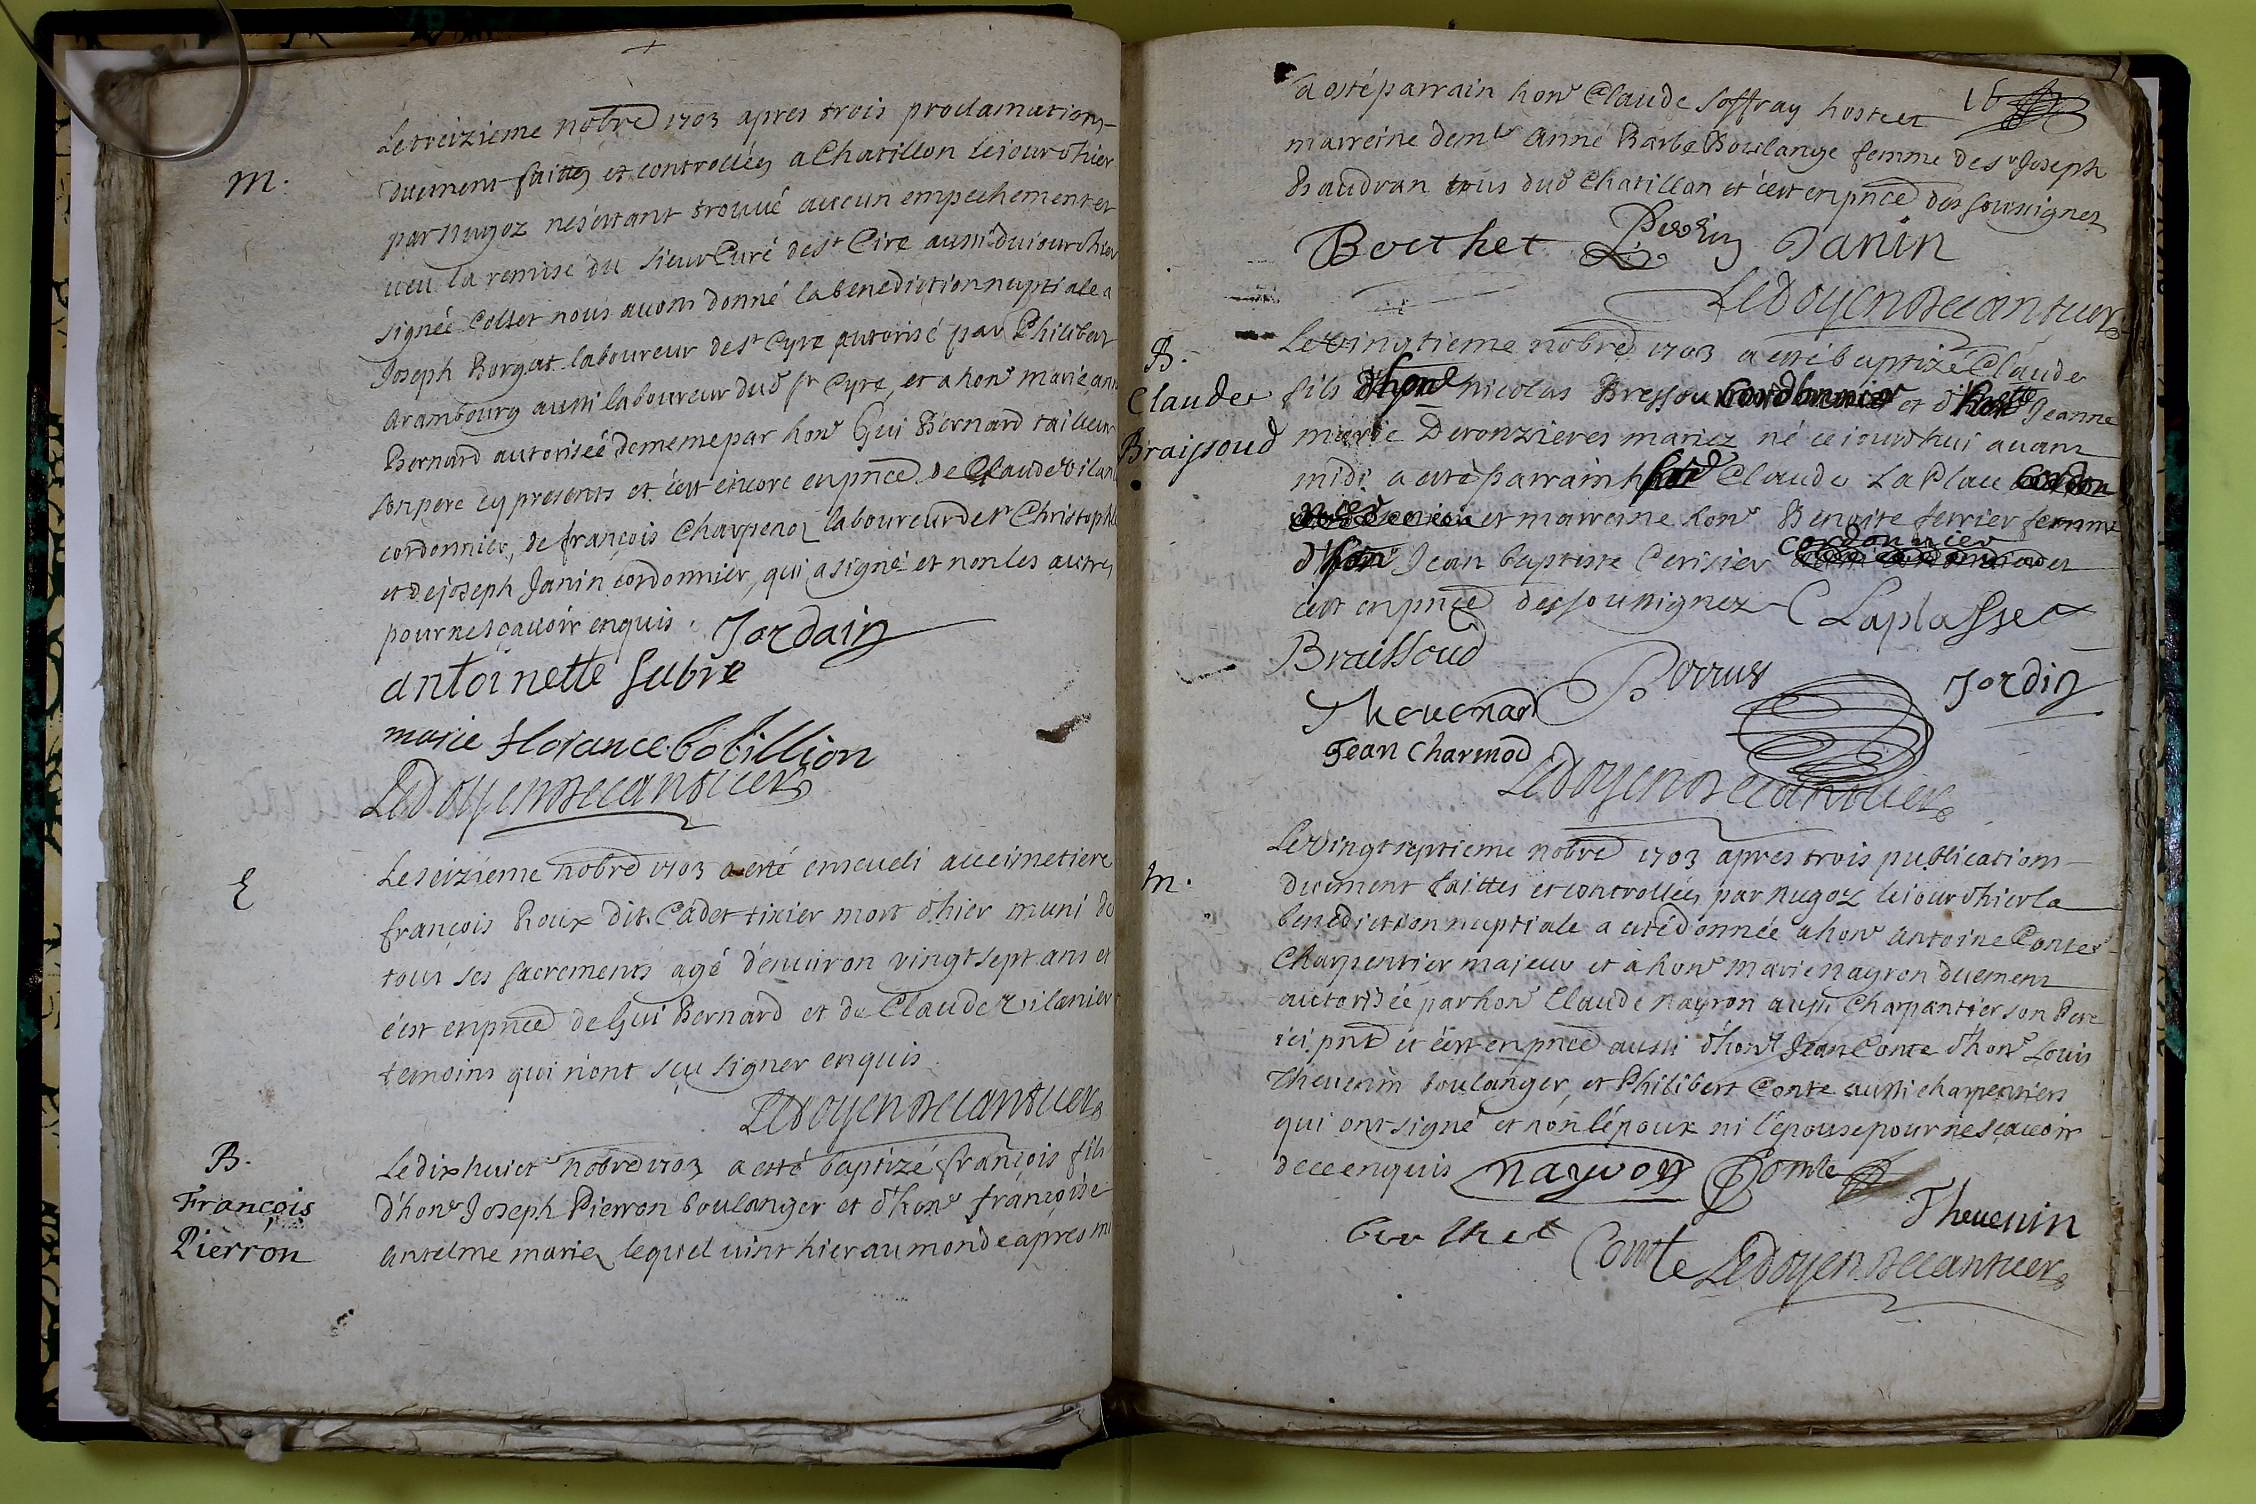 M.
Le treizieme nobre 1703 apres trois proclamations
duement faittes et controllées a Chatillon le jour d'hier
par nugoz nes'ettant trouvé aucun empechement et
veu la remise du sieur Curé de st Cire aussi du jour d'hier
signée Collet nous avons donné la benediction nuptiale a
Joseph Borgat laboureur de st Cyre autorisé par Philibert
Arambourg aussi laboureur dud st Cyre, et a hone marie ann
Bernard autorisée de meme par hone Gui Bernard tailleur
son pere cy presents et c'est encore en pnce de Claude Vilan
cordonnier, de françois Charpenoz laboureur de st Christophle
et de joseph Janin cordonnier, qui a signé et non les autres
pour ne sçavoir enquis. Jordain
antoinette Subre
marie Florance bobillion
Ledoyen Decantuer
E
Le seizieme nobre 1703 a esté enseveli au cimetiere
françois Roux dit Cadet tixier mort d'hier muni de
tous ses sacrements agé d'environ vingt sept ans et
c'est en pnce de Gui Bernard et de Claude Vilanier
temoins qui n'ont sçu signer enquis
Ledoyen Decantuer
B.
François
Pierron
Le dix huict nobre 1703 a esté baptizé françois fils
d'hone Joseph Pierron boulanger et d'hone françoise
Antelme mariez lequel vint hier au monde apres mi
16
a esté parrain hone Claude Soffray hoste et
marreine demle Anne Barbe Boulange femme de sr Joseph
Baudran tous dud Chatillan et c'est en pnce des soussignez
Berthet Perrin Janin
Ledoyen Decantuer
B.
Claude
Braissoud
Le vingtieme nobre 1703 a esté baptizé Claude
fils d'hone Nicolas Bressou cordonnier et d'honete Jeanne
marie Deronzieres mariez né ce jourd'hui avant
midi a esté parrain Claude La Place cordon
et marreine hone Benoite ferrier femme
d'hone Jean baptiste Cerisier cordonnier et
c'est en pnce des soussignez C Laplasse
Braissoud
Perrus Jordin
Thevenard
Jean Charmod
Ledoyen Decantuer
M.
Le vingt septieme nobre 1703 apres trois publications
duement faittes et controllées par nugoz le jour d'hier la
benediction nuptiale a esté donnée a hone Antoine Conte
Charpentier majeur et a hone marie nayron duement
autorisée par hone Claude nayron aussi Charpantier son Pere
ici pnt et c'est en pnce aussi d'hone Jean Conte d'hone Louis
Thevenin boulanger, et Philibert Conte aussi charpentiers
qui ont signé et non l'époux ni l'épouse pour ne sçavoir
de ce enquis nayron Comte
Thevenin
berthet Comte Ledoyen Decantuer